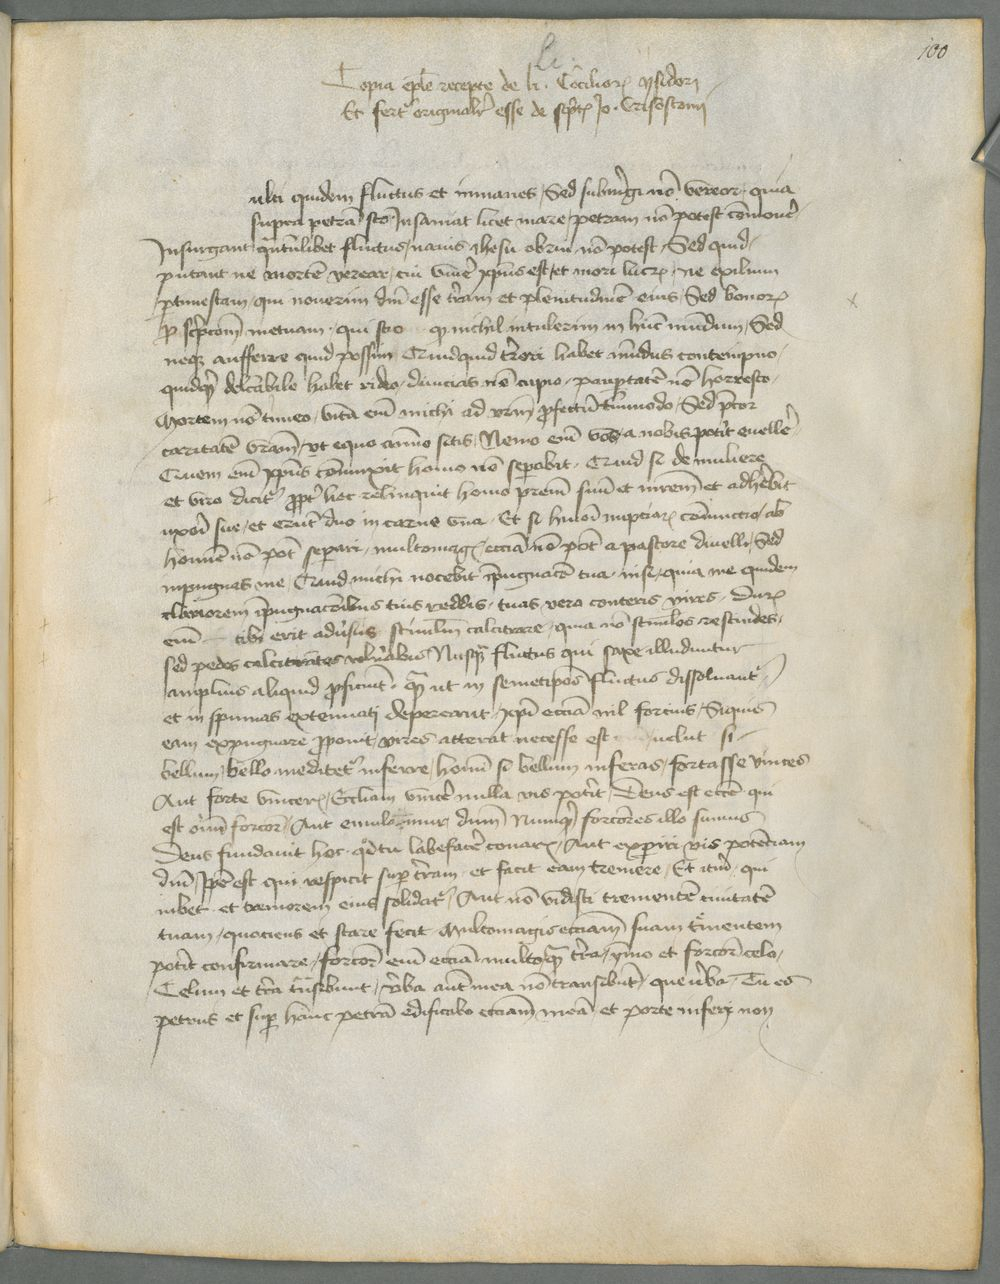 100
Li.
Copia eple recepte de li. Cōcilioꝝ ysidori
Et fert originalr̄ esse de scpt̄ Jo. Crisostomi
ulti quidem fluctus et inmanes / Sed submergi nō vereor / quia
supra petrā sto Insaniat licet mare / petram nō potest cōmouē
Insurgant quātūlibet fluctus / nauis ihesu obrui nō potest / Sed quid
putant ne mortē verear / cui viuē xp̄us est / et mori lucrū / ne exilium
ptimescam / qui nouerim dn̄i esse terram et plenitudinē eius / Sed bonoꝝ
ꝓscpcōem metuam / qui scio ꝙ nichil intulerim in hūc mundum / Sed
neqꝫ aufferre quid possim Quidquid trōri habet mūdus contempno /
quidqd delcābile habet rideo / diuicias nō cupio / paupertatē nō horresco /
Mortem nō timeo / vitā em̄ michi ad vr̄m ꝓfectū tmmodo / Sed pcor
caritatē vr̄am / ut equo animo sitis / Nemo em̄ vos a nobis potit euellē
Quem em̄ xp̄us cōiunxit homo nō sepabit / Quid si de muliere
et viro dicit ꝓpt hoc relinquit homo pr̄em suū et mr̄em et adhebit
uxori sue / et erūt duo in carne vna / Et si huiōi nuptiaꝝ coniunctio / ab
homine nō pōt separi / multomagꝫ ecciā nō pōt a pastore diuelli / Sed
inpugnas me / Quid michi nocebit īpugnacō tua / nisi / quia me quidem
clariorem īpugnacōibus tuis reddis / tuas vero conteris vires / Durū
em̄ tibi erit aduersus stimulū calcitrare / quia nō stimulos rescindes /
sed pedes calcitrantes vulnerabis Nusqᷓ fluctus qui saxo illiduntur
amplius aliquid ꝓficiūt / qᷓ ut in semetipos fluctus dissoluant /
et in spumas extenuati depereant / xp̄i ecciā nil forcius / Siquis
eam expugnare ꝓponit / vires atterat necesse est uelut si
bellum / bello meditet inferre / homi si bellum inferas / fortasse vinces
Aut forte vinceris / Eccliam vincē nulla vis potit / Deus est eccē qui
est oīm forcior / Aut emulamur dm̄ Numqd forciores illo sumus
Deus fundauit hoc / qd tu labefacē conaris / Aut experiri vis potēciam
dn̄i / Ipē est qui respicit sup terram / et facit eam tremere / Et itm̄ / qui
iubet et tremorem eius solidat / Aut nō vidisti trementē ciuitatē
tuam / quociens et stare fecit Multomagis ecciam suam trementem
potit confirmare / forcior em̄ ecciā multoqᷓ terra / ymo et forcior celo /
Celum et terra transibunt / vba aut mea nō transibunt / que vba / Tu es
petrus et sup hanc petrā edificabo ecciam meā et porte inferi non